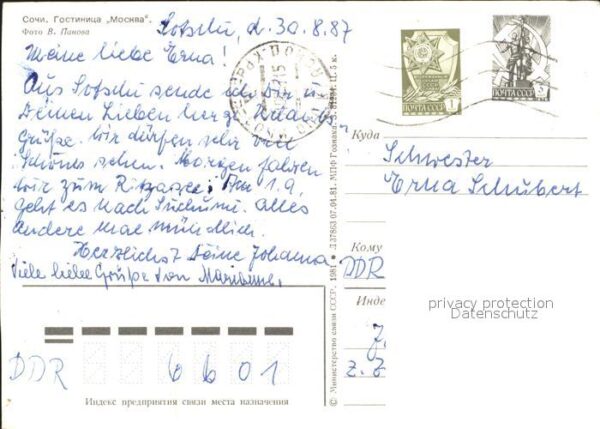 Сочи. Гостиница „Москва".
Фото В. Панова
Sotschi, d. 30.8.87
Meine liebe Erna!
Aus Sotschi sende ich Dir u.
Deinen Lieben herzl. Urlaubs
Grüße. Wir dürfen sehr viel
Schönes sehen. Morgen fahren
wir zum Ritzasee; Am 1.9.
geht es nach Suchumi. Alles
andere mal mündlich.
Herzlichst Deine Johanna
Viele liebe Grüße von Marianne.
ПОЧТА СССР 1
ПОЧТА СССР
Куда
Schwester
Erna Schubert
Кому
DDR
Инде
z. Z
privacy protection
Datenschutz
© Министерство связи СССР, 1981
DDR 6601
Индекс предприятия связи места назначения